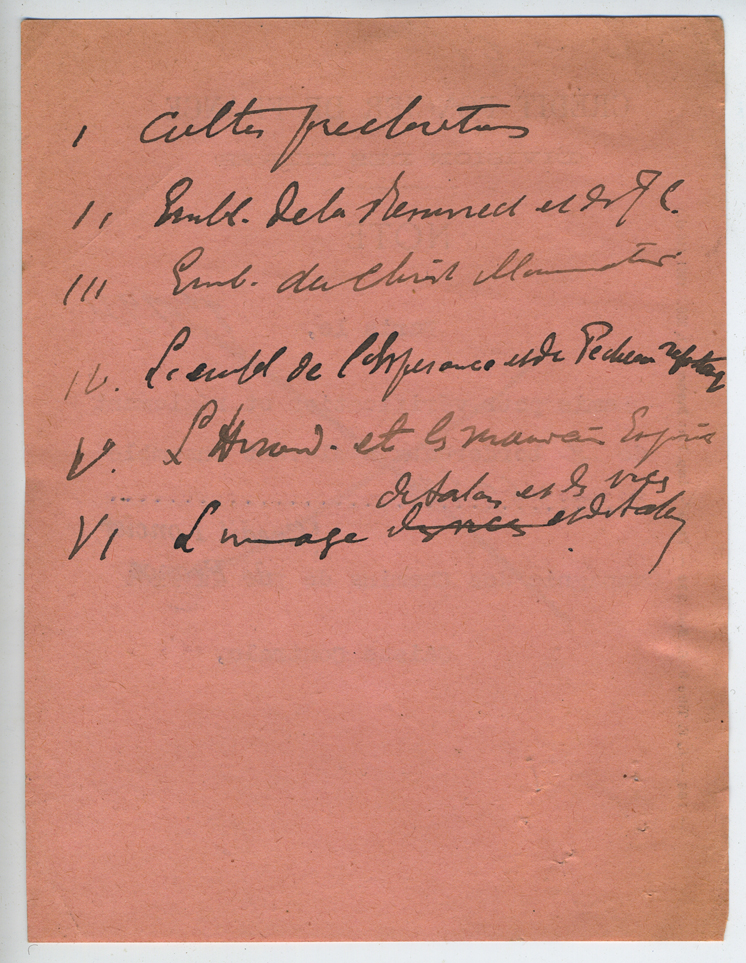 I Cultes préchrétiens
II Embl. de la Résurrect et de J C.
III Emb. du Christ illuminateur
IV. L'embl de l'Espérance et du Pécheur
V. L'Hirond. et les mauvais Esprits
de Satan et des vices
VI L'image des vices et de Satan